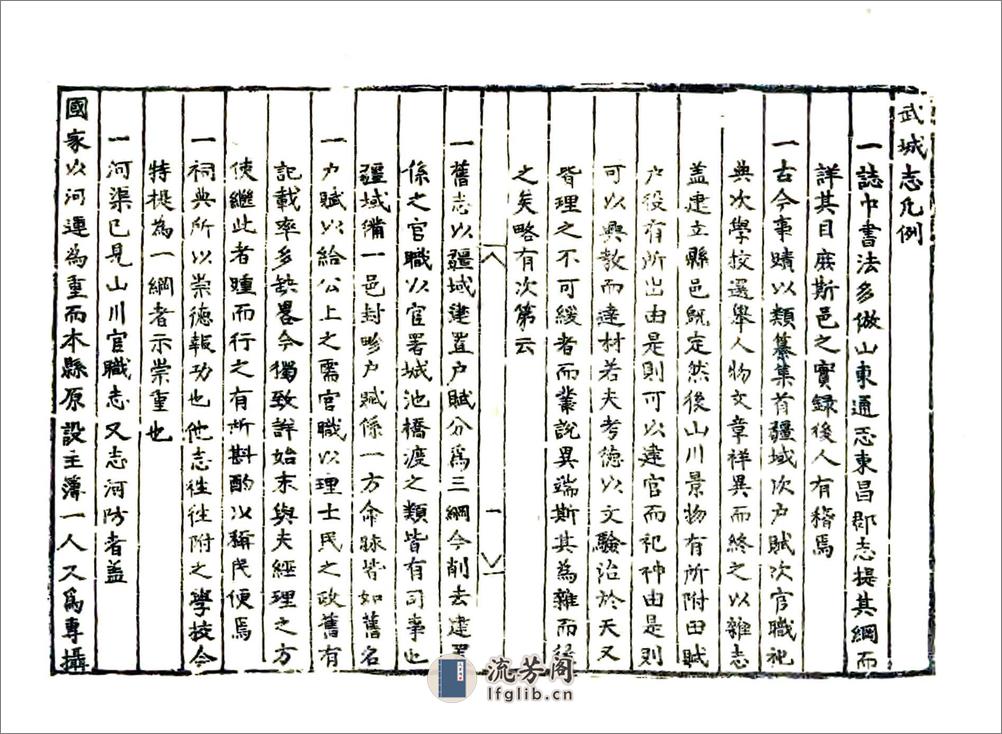 武城志凡例
一誌中書法多倣山東通志東昌郡志提其綱而
詳其目庶斯邑之實録後人有稽焉
一古今事蹟以類纂集首疆域次户賦次官職祀
典次學校選舉人物文章祥異而終之以雜志
盖建立縣邑既定然後山川景物有所附田賦
户役有所出由是則可以建官而祀神由是則
可以興教而達材若夫考德以文驗治於天又
皆理之不可緩者而叢說異端斯其為雜而後
之矣略有次第云
一舊志以疆域建置户賦分為三綱今削去建置
係之官職以官署城池橋渡之類皆有司事也
疆域備一邑封畛户賦係一方命脉皆如舊名
一户賦以給公上之需官職以理士民之政舊有
記載率多缺畧今獨致詳始末與夫經理之方
使繼此者踵而行之有所斟酌以稱民便焉
一祠典所以崇德報功也他志徃徃附之學校今
特提為一綱者示崇重也
一河渠已見山川官職志又志河防者盖
國家以河運為重而本縣原設主薄一人又為專攝
一
流芳阁
lfglib.cn